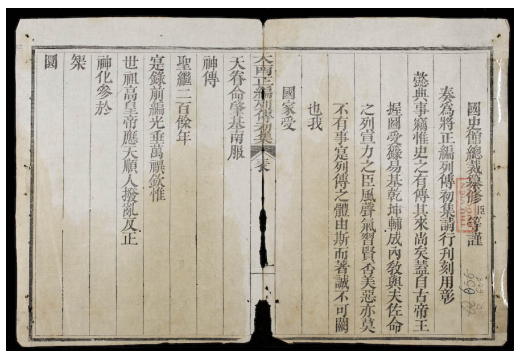 國史館總裁纂修臣等謹
奏為將正編列傳初集請行刊刻用彰
懿典事竊惟史之有傳其來尚矣蓋自古帝王
握圖受籙易基乾坤輔成內教與夫佐命
之列宣力之臣風聲氣習賢否美惡亦莫
不有事寔列傳之體由斯而著誠不可闕
也我
國家受
大南正編列傳初集
天眷命肇基南服
神傳
聖繼二百餘年
寔錄前編光垂萬禩欽惟
世祖高皇帝應天順人撥亂反正
神化參於